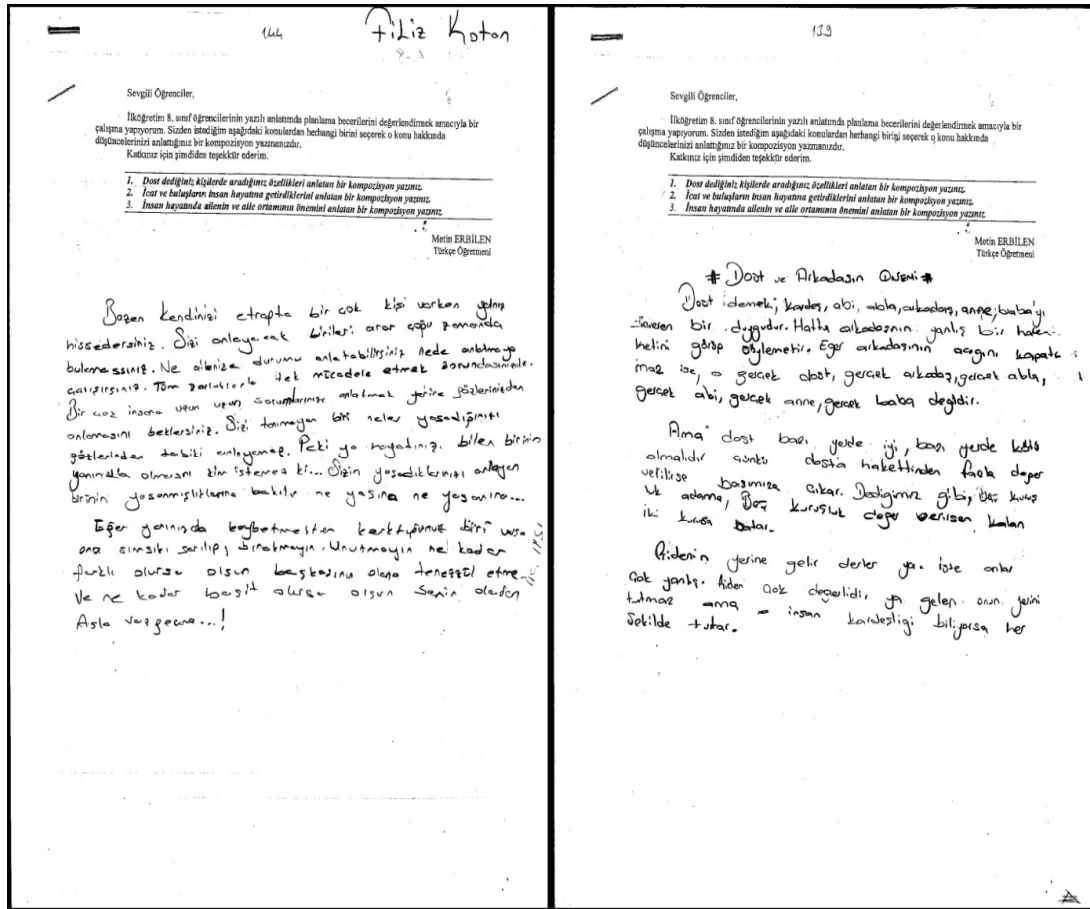 144
Filiz Koton
Sevgili Öğrenciler,
İlköğretim 8. sınıf öğrencilerinin yazılı anlatımda planlama becerilerini değerlendirmek amacıyla bir
çalışma yapıyorum. Sizden istediğim aşağıdaki konulardan herhangi birini seçerek o konu hakkında
düşüncelerinizi anlattığınız bir kompozisyon yazmanızdır.
Katkınız için şimdiden teşekkür ederim.
1. Dost dediğiniz kişilerde aradığınız özellikleri anlatan bir kompozisyon yazınız.
2. İcat ve buluşların insan hayatına getirdiklerini anlatan bir kompozisyon yazınız.
3. İnsan hayatında ailenin ve aile ortamının önemini anlatan bir kompozisyon yazınız.
Metin ERBİLEN
Türkçe Öğretmeni
Bazen kendinizi etrapta bir çok kişi varken yalnız
hissedersiniz. Sizi anlayacak birileri arar çoğu zamanda
bulamassınız. Ne ailenize durumu anlatabilirsiniz nede anlatmaya
çalışırsınız. Tüm zorluklarla tek mücadele etmek zorundasınızdır.
Bir çok insana uzun uzun sorunlarınızı anlatmak yerine gözlerinizden
anlamasını beklersiniz. Sizi tanımayan biri neler yaşadığınızı
gözlerinizden tabiki anlayamaz. Peki ya hayatınızı bilen birinin
yanınızda olmasını kim istemez ki... Sizin yaşadıklarınızı anlayan
birinin yaşanmışlıklarına bakılır ne yaşına ne yaşamına...
Eğer yanınızda kaybetmekten korktuğunuz biri varsa
ona sımsıkı sarılıp, bırakmayın. Unutmayın ne kadar
farklı olursa olsun başkasının olana tenezzül etme
Ve ne kadar basit olursa olsun senin olandan
Asla vazgeçme...!
139
Sevgili Öğrenciler,
İlköğretim 8. sınıf öğrencilerinin yazılı anlatımda planlama becerilerini değerlendirmek amacıyla bir
çalışma yapıyorum. Sizden istediğim aşağıdaki konulardan herhangi birini seçerek o konu hakkında
düşüncelerinizi anlattığınız bir kompozisyon yazmanızdır.
Katkınız için şimdiden teşekkür ederim.
1. Dost dediğiniz kişilerde aradığınız özellikleri anlatan bir kompozisyon yazınız.
2. İcat ve buluşların insan hayatına getirdiklerini anlatan bir kompozisyon yazınız.
3. İnsan hayatında ailenin ve aile ortamının önemini anlatan bir kompozisyon yazınız.
Metin ERBİLEN
Türkçe Öğretmeni
# Dost ve Arkadaşın ÖNEMİ #
Dost demek; kardeş, abi, abla, arkadaş, anne, baba'yı
bir duygudur. Hatta arkadaşının yanlış bir hareke
görüp söylemetir. Eğer arkadaşının açığını kapata
maz ise, o gerçek dost, gerçek arkadaş, gerçek abla,
gerçek abi, gerçek anne, gerçek baba değildir.
Ama dost bazı yerde iyi, bazı yerde kötü
olmalıdır çünkü dosta hakettinden fazla değer
verilise başımıza çıkar. Dediğimiz gibi, Beş kuruş
luk adama, Beş kuruşluk değer verirsen kalan
iki kuruşa satar.
Gidenin yerine gelir derler ya. işte onlar
Çok yanlış. Giden çok değerlidir, ya gelen onun yerini
tutmaz ama o insan kardeşliği biliyorsa her
Şekilde tutar.